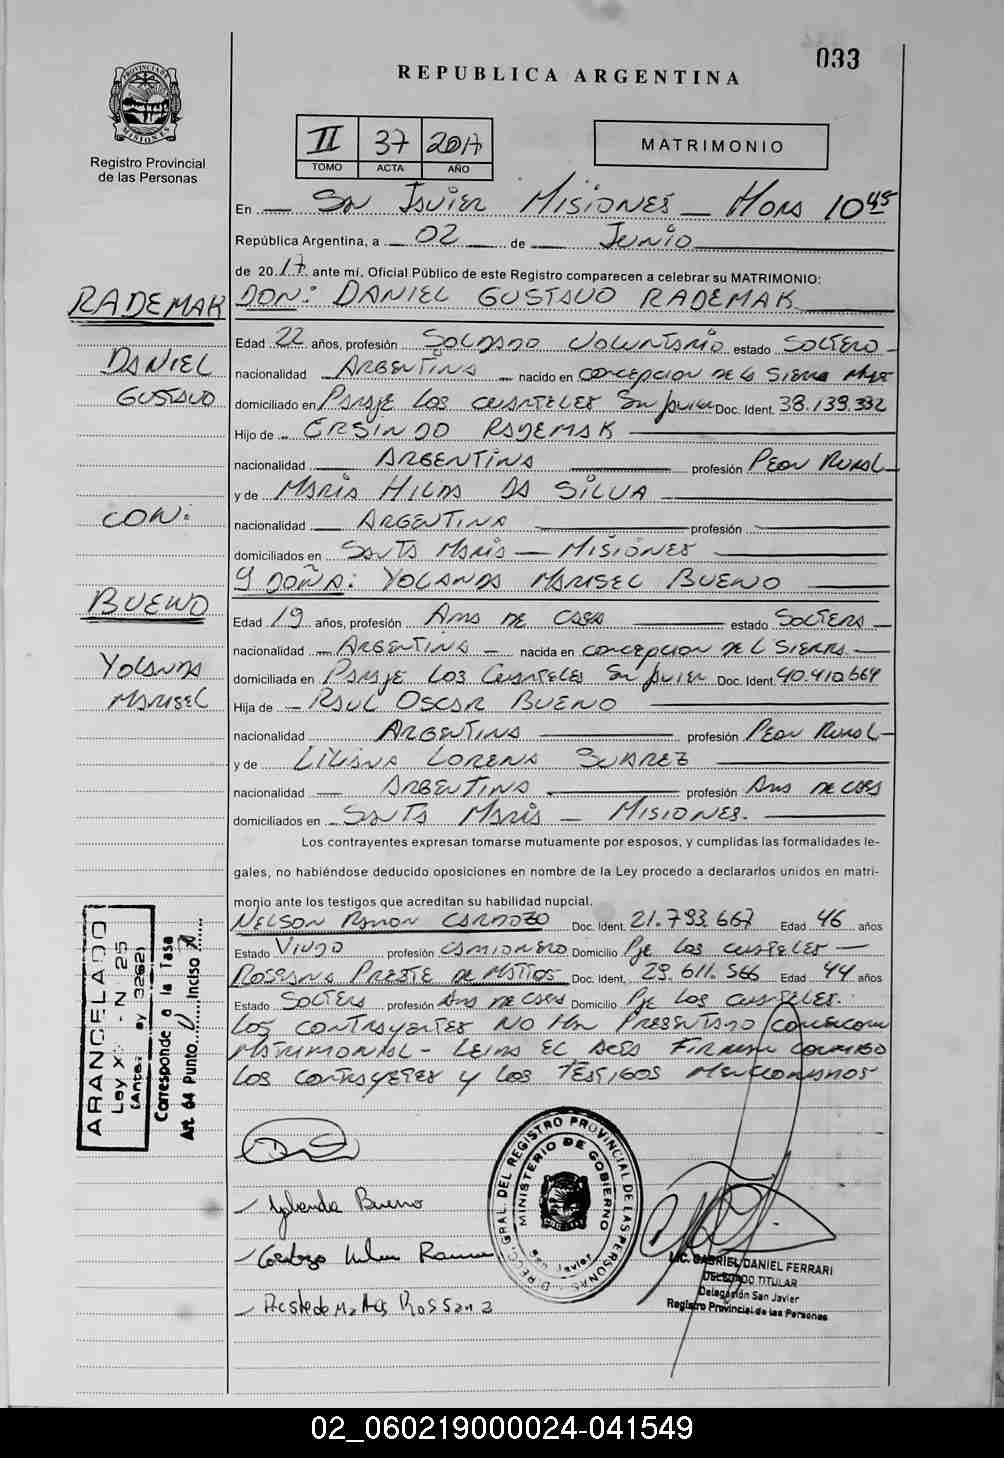 033
REPUBLICA ARGENTINA
PROVINCIA DE
MISIONES
Registro Provincial
de las Personas
II 37 2017
TOMO ACTA AÑO
MATRIMONIO
En San Javier Misiones - Hora 10 45
República Argentina, a 02 de Junio
de 2017 ante mí, Oficial Público de este Registro comparecen a celebrar su MATRIMONIO:
DON: DANIEL GUSTAVO RADEMAK
Edad 22 años, profesión Soldado Voluntario estado Soltero
nacionalidad Argentina nacido en Concepcion de la Sierra Mnes
domiciliado en Paraje Los Cuarteles San Javier Doc. Ident. 38.139.332
Hijo de Ersindo Rademak
nacionalidad Argentina profesión Peon Rural
y de Maria Hilda Da Silva
nacionalidad Argentina profesión
domiciliados en Santa Maria - Misiones
Y DOÑA: YOLANDA MARISEL BUENO
Edad 19 años, profesión Ama de Casa estado Soltera
nacionalidad Argentina - nacida en Concepcion de L Sierra
domiciliada en Paraje Los Cuarteles San Javier Doc. Ident. 40.410.669
Hija de Raul Oscar Bueno
nacionalidad Argentina profesión Peon Rural
y de Liliana Lorena Suarez
nacionalidad Argentina profesión Ama de Casa
domiciliados en Santa Maria - Misiones.
Los contrayentes expresan tomarse mutuamente por esposos, y cumplidas las formalidades le-
gales, no habiéndose deducido oposiciones en nombre de la Ley procedo a declararlos unidos en matri-
monio ante los testigos que acreditan su habilidad nupcial.
Nelson Ramon Cardozo Doc. Ident. 21.793.667 Edad 46 años
Estado Viudo profesión Camionero Domicilio Pje Los Cuarteles
Rossana Preste de Mattos Doc. Ident. 29.611.566 Edad 44 años
Estado Soltera profesión Ama de Casa Domicilio Pje Los Cuarteles.
Los contrayentes no han presentado
Matrimonial - Leida el Acta Firman conmigo
Los contrayetes y los Testigos Mencionados
RADEMAK
DANIEL
GUSTAVO
CON:
BUENO
YOLANDA
MARISEL
ARANCELADO
Ley XX - N 25
(Antes Ley 3262)
Corresponde a la Tasa
Art. 64 Punto Inciso
Yolanda Bueno
Cardozo Nelson Ramon
Preste de Mattos Rossana
DIRECC. GRAL. DEL REGISTRO PROVINCIAL DE LAS PERSONAS
MINISTERIO DE GOBIERNO
San Javier
LIC. GABRIEL DANIEL FERRARI
DELEGADO TITULAR
Delegación San Javier
Registro Provincial de las Personas
02_060219000024-041549